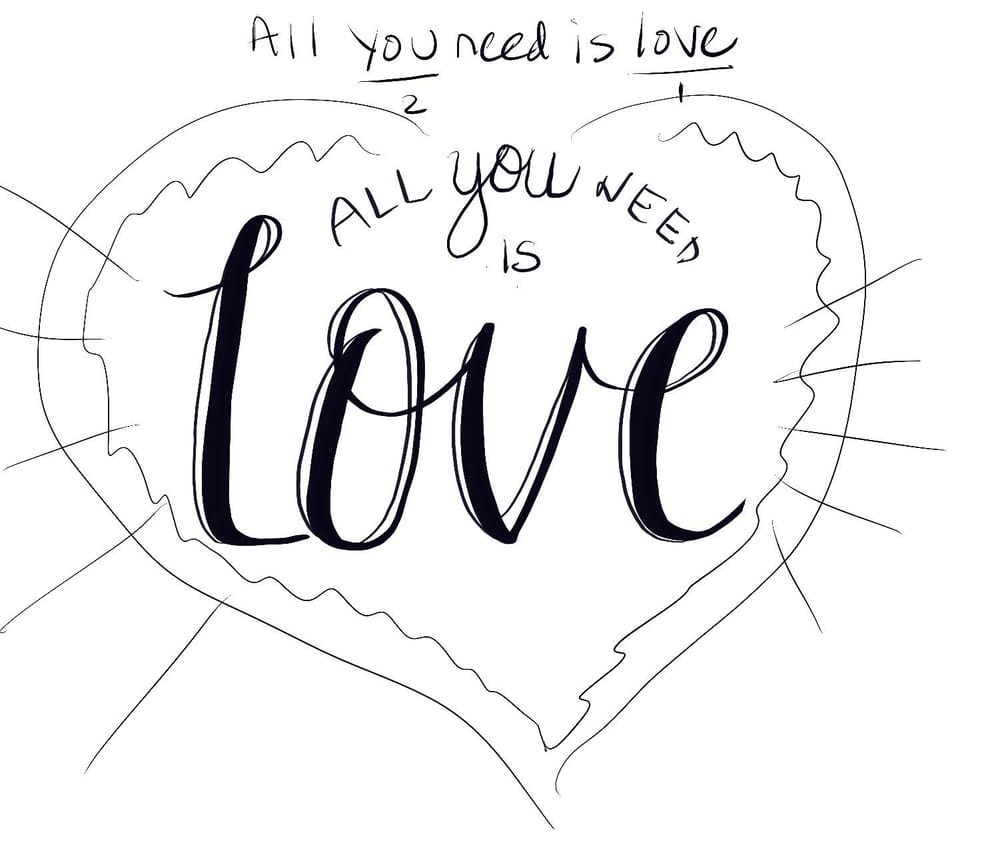 All you need is love
2 1
ALL you NEED
IS
Love